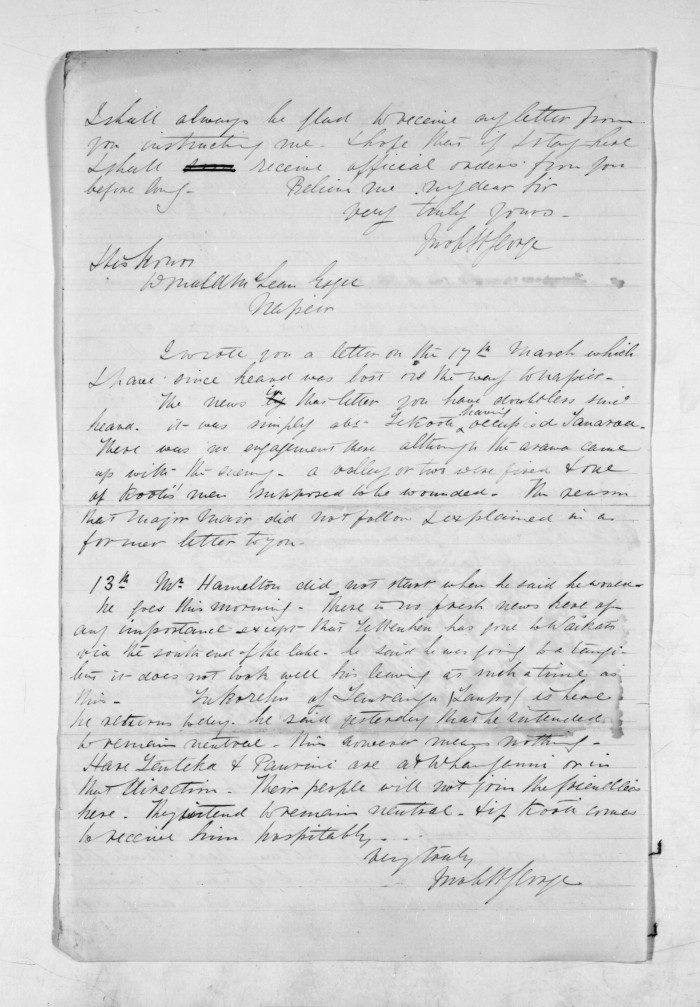 I shall always be glad to receive any letter from
you instructing me. I hope that if I stay here
I shall receive official orders from you
before long. Believe me my dear Sir
very truly yours -
His Honor
Donald McLean Esqre
Napier
I wrote you a letter on the 17th March which
I have since heard was lost on the way to Napier -
The news in that letter you have doubtless since
heard. it was simply abt Te Kooti having occupied Tamarau.
There was no engagement there although the arawa came
up with the enemy - a volley or two were fired & one
of Kooti's men supposed to be wounded. The reason
that Major Mair did not follow I explained in a
former letter to you.
13th Mr Hamelton did not start when he said he would -
he goes this morning - There is no fresh news here of
any importance except that has gone to Waikato
via the south end of the lake - he said he was going to a tangi
but it does not look well his leaving at such a time as
this - of Tauranga (Taupo) is here
he returns today. he said yesterday that he intended
to remain neutral. this however means nothing -
Hare & are at or in
that direction. Their people will not join the friendlies
here. They intend to remain neutral - & if Kooti comes
to receive him hospitably - . .
very truly